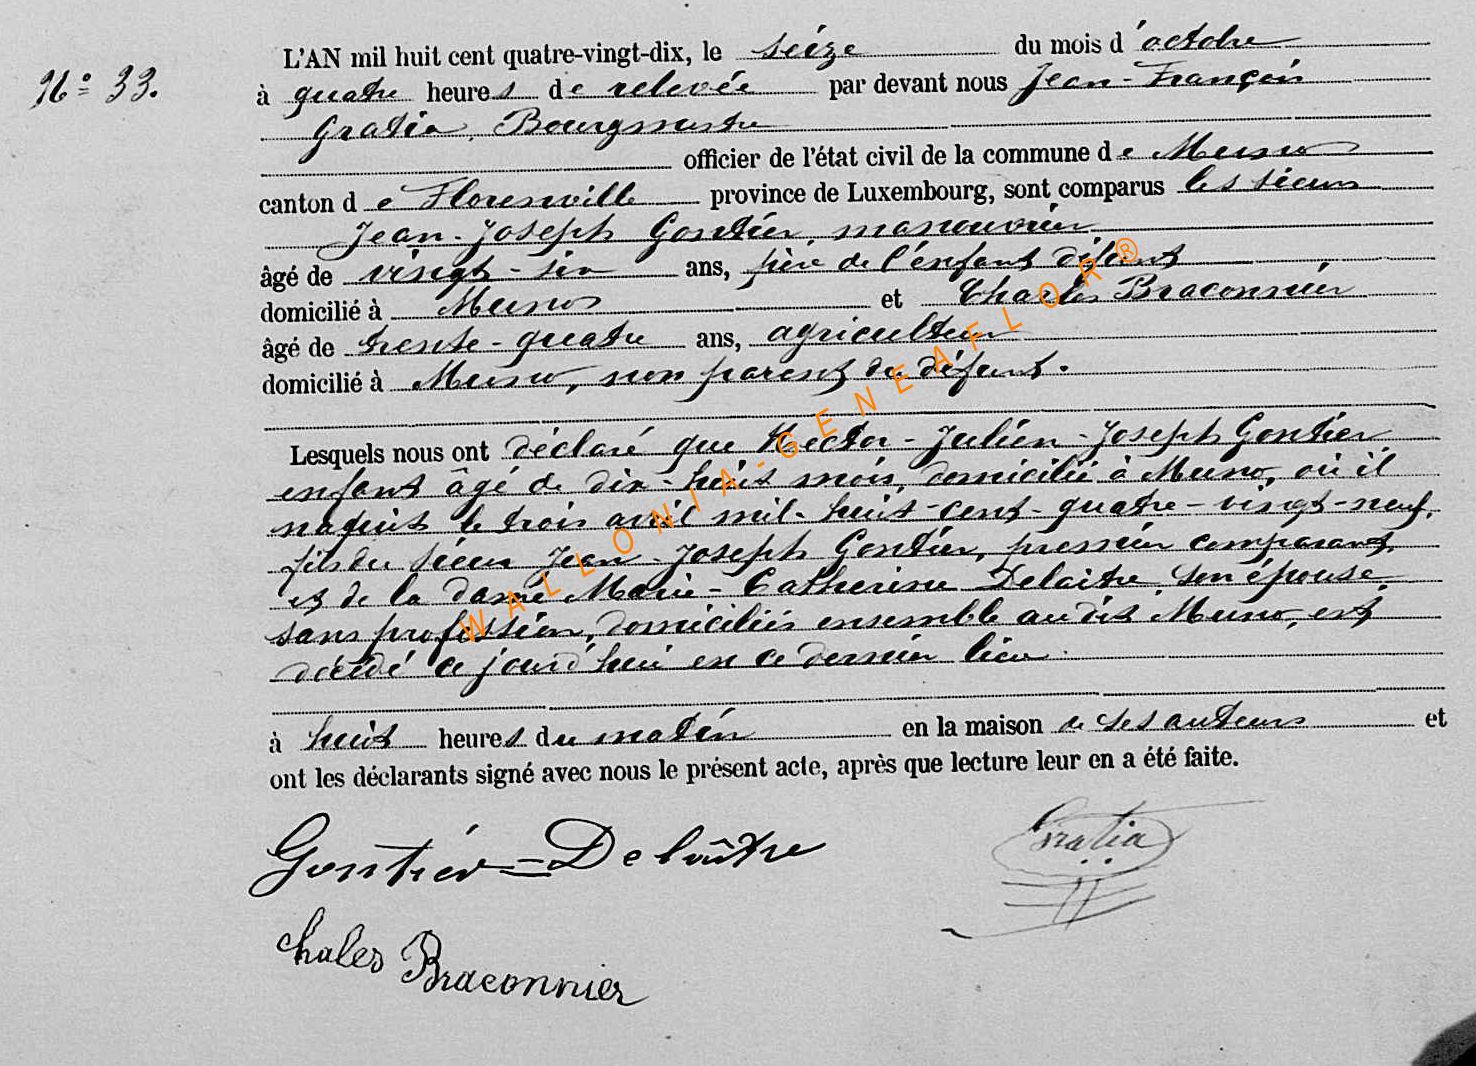 N° 33.
L'AN mil huit cent quatre-vingt-dix, le seize du mois d'octobre
à quatre heures de relevée par devant nous Jean-François
Gratia, Bourgmestre
officier de l'état civil de la commune de Muno
canton de Florenville province de Luxembourg, sont comparus les sieurs
Jean-Joseph Gontier, manouvrier
âgé de vingt-six ans, père de l'enfant défunt
domicilié à Muno et Charles Braconnier
âgé de trente-quatre ans, agriculteur
domicilié à Muno, non parent du défunt.
Lesquels nous ont déclaré que Hector-Julien-Joseph Gontier
enfant âgé de dix-huit mois, domicilié à Muno, où il
naquit le trois avril mil-huit-cent-quatre-vingt-neuf,
fils du sieur Jean-Joseph Gontier, premier comparant,
et de la dame Marie-Catherine Delaitre son épouse,
sans profession, domiciliés ensemble audit Muno, est
décédé ce jourd'hui en ce dernier lieu
à huit heures du matin en la maison de ses auteurs et
ont les déclarants signé avec nous le présent acte, après que lecture leur en a été faite.
Gontier=Delaître
Gratia
Chales Braconnier
WALLONIA-GENEAFLOR®